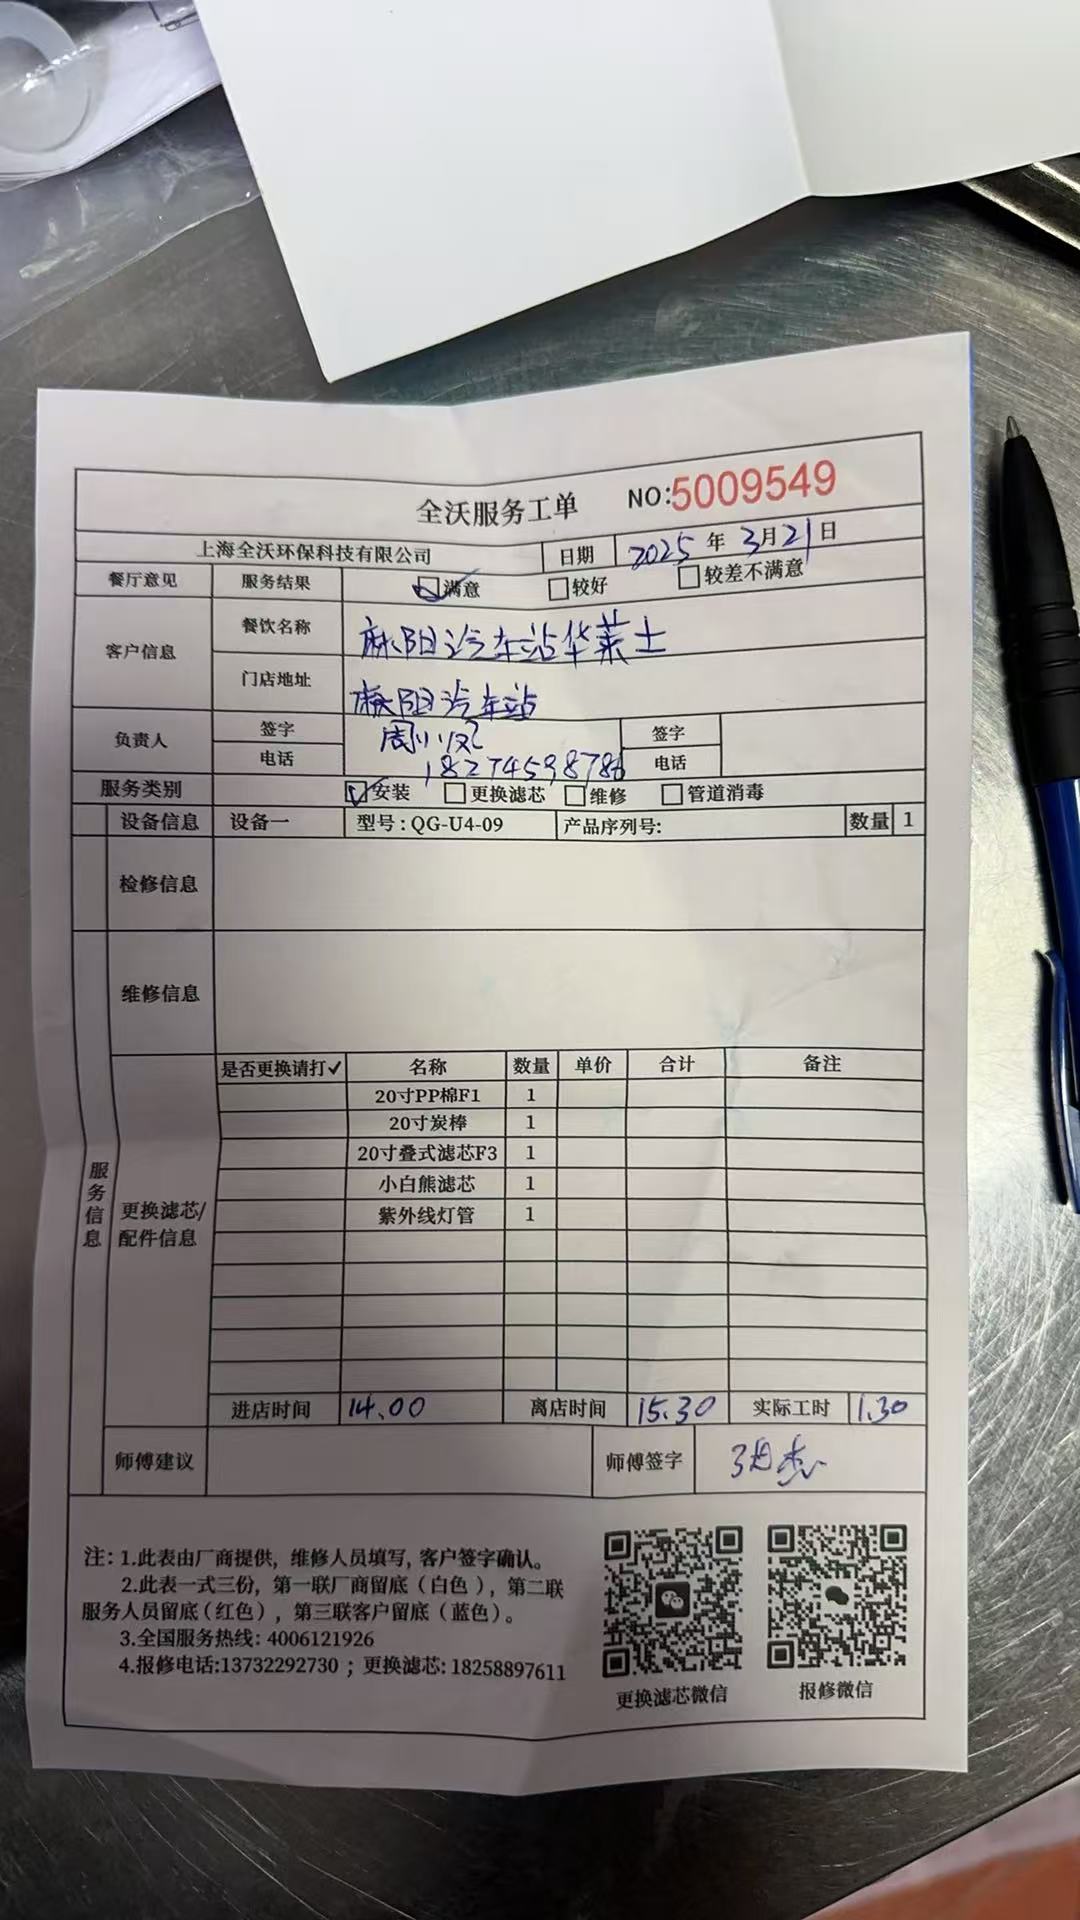 全沃服务工单 NO:5009549
上海全沃环保科技有限公司 日期 2025 年 3月21日
餐厅意见 服务结果 满意 较好 较差不满意
客户信息 餐饮名称 麻阳汽车站华莱士
门店地址 麻阳汽车站
负责人 签字 周小凤 签字
电话 18274598786 电话
服务类别 安装 更换滤芯 维修 管道消毒
设备信息 设备一 型号:QG-U4-09 产品序列号: 数量 1
检修信息
维修信息
服务信息
更换滤芯/配件信息
是否更换请打✓ 名称 数量 单价 合计 备注
20寸PP棉F1 1
20寸炭棒 1
20寸叠式滤芯F3 1
小白熊滤芯 1
紫外线灯管 1
进店时间 14.00 离店时间 15.30 实际工时 1.30
师傅建议 师傅签字
注: 1.此表由厂商提供, 维修人员填写, 客户签字确认。
2.此表一式三份, 第一联厂商留底 (白色 ), 第二联
服务人员留底 (红色) , 第三联客户留底 ( 蓝色) 。
3.全国服务热线: 4006121926
4.报修电话:13732292730 ; 更换滤芯: 18258897611
更换滤芯微信 报修微信